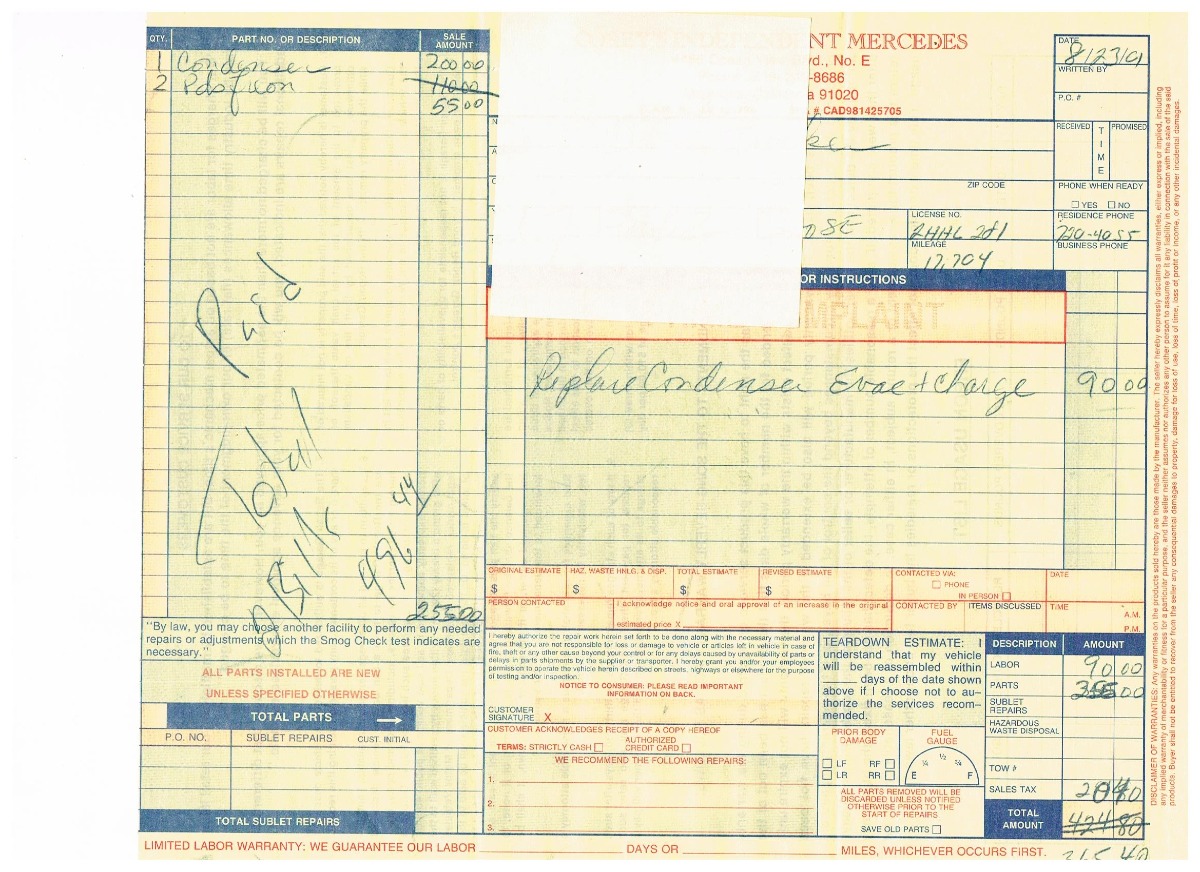 QTY. PART NO. OR DESCRIPTION SALE AMOUNT
1 Condenser 200 00
2 110 00
55 00
Paid
Total
496 44
255 00
"By law, you may choose another facility to perform any needed
repairs or adjustments which the Smog Check test indicates are
necessary."
ALL PARTS INSTALLED ARE NEW
UNLESS SPECIFIED OTHERWISE
TOTAL PARTS
P.O. NO. SUBLET REPAIRS CUST. INITIAL
TOTAL SUBLET REPAIRS
NT MERCEDES
vd., No. E
-8686
a 91020
# CAD981425705
DATE 8/23/01
WRITTEN BY
P.C. #
RECEIVED TIME PROMISED
ZIP CODE
PHONE WHEN READY
YES NO
LICENSE NO. 2HHL281
RESIDENCE PHONE
MILEAGE 17,704
720-4055
BUSINESS PHONE
OR INSTRUCTIONS
MPLAINT
Replace Condenser Evac + Charge 90 00
ORIGINAL ESTIMATE $
HAZ. WASTE HNLG. & DISP. $
TOTAL ESTIMATE $
REVISED ESTIMATE $
CONTACTED VIA:
PHONE
IN PERSON
DATE
PERSON CONTACTED
I acknowledge notice and oral approval of an increase in the original
estimated price X
CONTACTED BY
ITEMS DISCUSSED
TIME
A.M.
P.M.
I hereby authorize the repair work herein set forth to be done along with the necessary material and
agree that you are not responsible for loss or damage to vehicle or articles left in vehicle in case of
fire, theft or any other cause beyond your control or for any delays caused by unavailability of parts or
delays in parts shipments by the supplier or transporter. I hereby grant you and/or your employees
permission to operate the vehicle herein described on streets, highways or elsewhere for the purpose
of testing and/or inspection.
NOTICE TO CONSUMER: PLEASE READ IMPORTANT
INFORMATION ON BACK.
CUSTOMER
SIGNATURE X
CUSTOMER ACKNOWLEDGES RECEIPT OF A COPY HEREOF
TERMS: STRICTLY CASH AUTHORIZED CREDIT CARD
WE RECOMMEND THE FOLLOWING REPAIRS:
1.
2.
3.
TEARDOWN ESTIMATE: I
understand that my vehicle
will be reassembled within
____ days of the date shown
above if I choose not to au-
thorize the services recom-
mended.
PRIOR BODY
DAMAGE
LF RF
LR RR
FUEL
GAUGE
¼ ½ ¾
E F
ALL PARTS REMOVED WILL BE
DISCARDED UNLESS NOTIFIED
OTHERWISE PRIOR TO THE
START OF REPAIRS
SAVE OLD PARTS
DESCRIPTION AMOUNT
LABOR 90 00
PARTS 255 00
SUBLET
REPAIRS
HAZARDOUS
WASTE DISPOSAL
TOW #
SALES TAX 20 40
TOTAL
AMOUNT 424 80
365.40
LIMITED LABOR WARRANTY: WE GUARANTEE OUR LABOR ____ DAYS OR ____ MILES, WHICHEVER OCCURS FIRST.
DISCLAIMER OF WARRANTIES: Any warranties on the products sold hereby are those made by the manufacturer. The seller hereby expressly disclaims all warranties, either express or implied, including
any implied warranty of merchantability or fitness for a particular purpose, and the seller neither assumes nor authorizes any other person to assume for it any liability in connection with the sale of the said
products. Buyer shall not be entitled to recover from the seller any consequential damages to property, damage for loss of use, loss of time, loss of profit or income, or any other incidental damages.